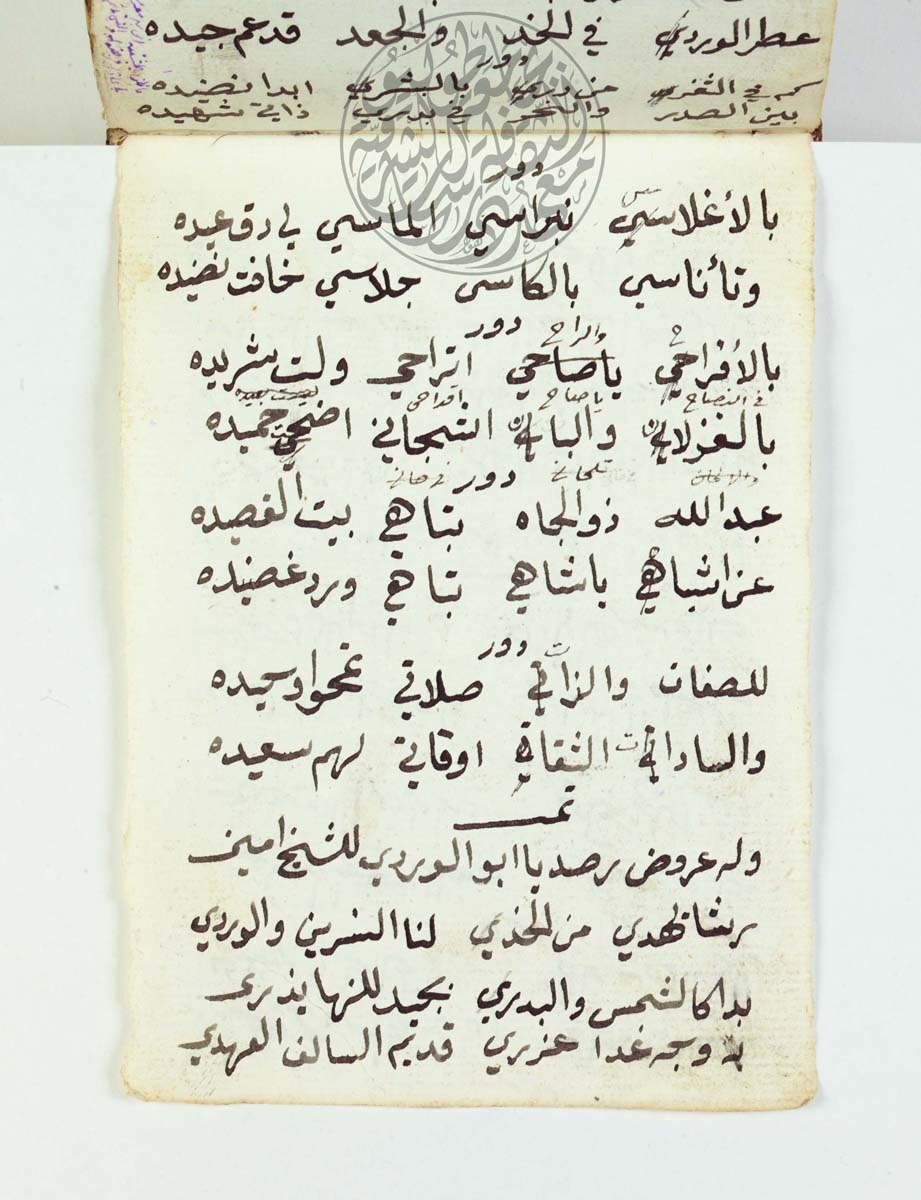 عطر الوردي في الخد والجعد قد عم جيده
دور
كم في الثغري من دري بالبشري ابدا نضيده
بين الصدر والنحر في بدري ذاتي شهيده
دور
بالأغلاسي نبراسي الماسي لي رق عيده
وتأناسي بالكاسي جلاسي خافت نضيده
دور
والراح
بالأفراحي ياصاحي اتراحي ولت شريده
في النصاح ياصاح اقداحي
بالغزلاني والباني اشجاني اضحت حميده
دور
عبدالله ذو الجاه تباهي بيت القصيده
عن اشباهي باشاهي تباهي ورد غصنيده
دور
للصفات والذاتي صلاتي تمحوا وسيده
والساداتي الثقاتي اوقاتي لهم سعيده
تمت
وله عروض رصد يا ابو الوردي للشيخ امين
رشا تهدي من الخدي لنا النسرين والوردي
بدا كالشمس والبدري بجيد للنهايذري
به وجه غدا عذري قديم السالف العهدي